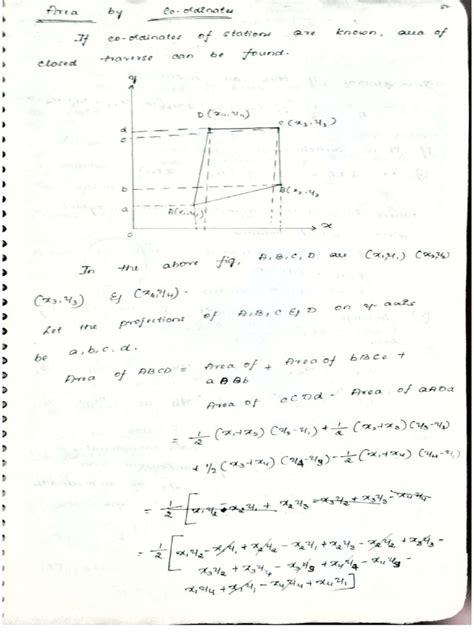 Area by Co-oldinates
If co-oldinates of stations are known, area of
closed traverse can be found.
y
D(x4,y4)
C(x3,y3)
d
c
b
B(x2,y2)
a
A(x1,y1)
0
x
In the above fig, A,B,C,D are (x1,y1) (x2,y2)
(x3,y3) & (x4,y4).
Let the projections of A,B,C & D on y-axis
be a,b,c,d.
Area of ABCD = Area of + Area of bBCc +
aABb
Area of cCDd - Area of aADd
= 1/2 (x1+x2) (y2-y1) + 1/2 (x2+x3) (y3-y2)
+ 1/2 (x3+x4) (y4-y3) - 1/2 (x1+x4) (y4-y1)
= 1/2 [x1y2 - x2y1 + x2y3
= 1/2 [x1y2 - x1y1 + x2y2 - x2y1 + x2y3 - x2y2 + x3y3 -
x3y2 + x3y4 - x3y3 + x4y4 - x4y3 -
x1y4 + x1y1 - x4y4 + x4y1]